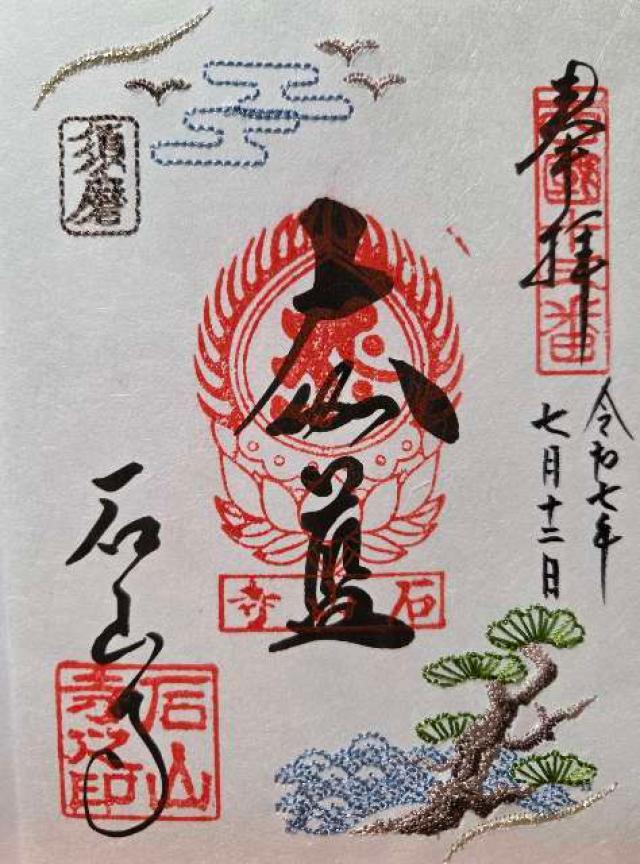 奉拝
令和七年
七月十二日
大伽藍
石山寺
須磨
石山寺
石山寺之印